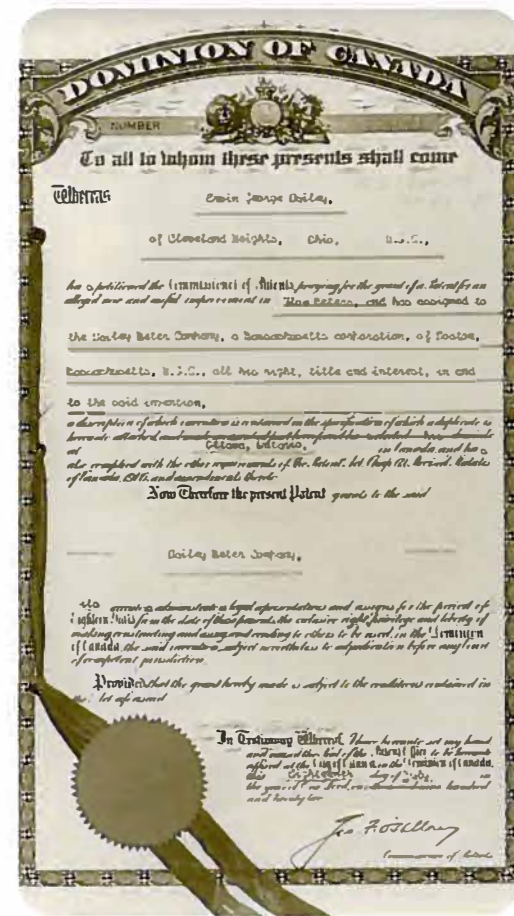 DOMINION OF CANADA
NUMBER
To all to whom these presents shall come
Whereas
George Bailey,
of Cleveland Heights, Ohio, U.S.A.,
has petitioned the Commissioner of Patents praying for the grant of a Patent for an
alleged new and useful improvement in and has assigned to
the Bailey Meter Company, a Massachusetts corporation, of Boston,
Massachusetts, U.S.A., all his right, title and interest, in and
to the said invention,
a description of which invention is contained in the specification of which a duplicate is
hereunto attached and
at Ottawa, Ontario, in Canada and has
also complied with the other requirements of the Patent Act Revised Statutes
of Canada, 1906, and amendments thereto
Now Therefore the present Patent grants to the said
Bailey Meter Company,
legal representatives and assigns for the period of
Eighteen Years from the date of these presents, the exclusive right privilege and liberty of
making constructing and using and vending to others to be used, in the Dominion
of Canada, the said invention, subject nevertheless to adjudication before any Court
of competent jurisdiction.
Provided that the grant hereby made is subject to the conditions contained in
the Act aforesaid
In Testimony Whereof, I have hereunto set my hand
and caused the Seal of the Patent Office to be hereunto
affixed at the City of Ottawa in the Dominion of Canada,
this day of in
the year of Our Lord, one thousand nine hundred
and twenty
Geo. F. O'Halloran
Commissioner of Patents